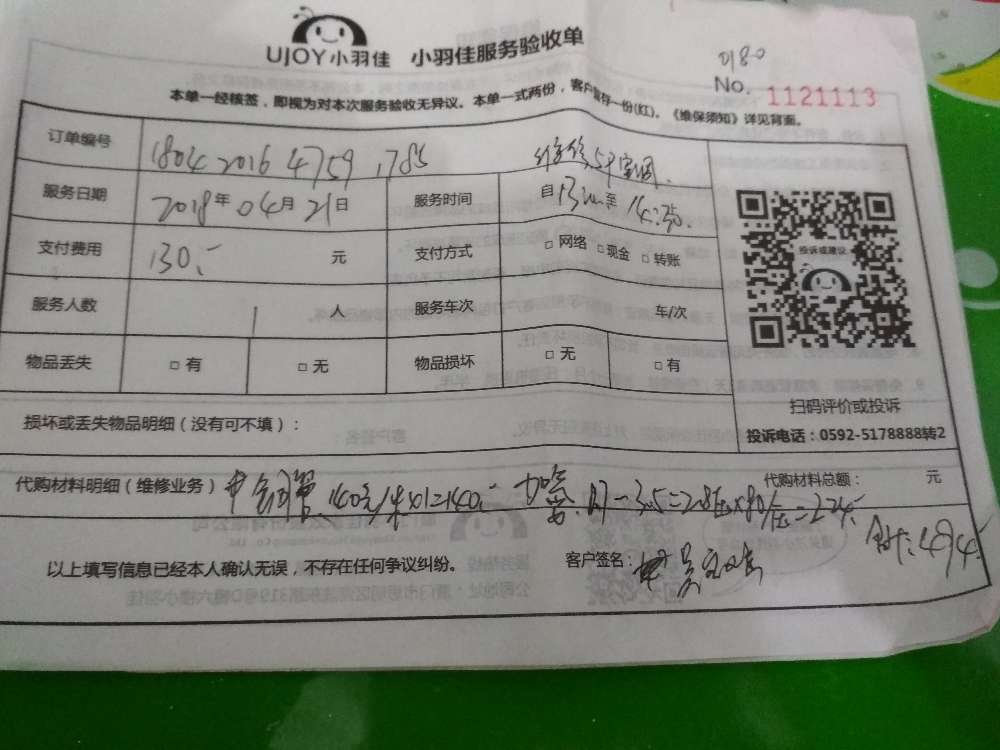 UJOY小羽佳 小羽佳服务验收单
0180
No. 1121113
本单一经核签，即视为对本次服务验收无异议。本单一式两份，客户留存一份(红)。《维保须知》详见背面。
订单编号 1804 2016 4759 1785 维修5P空调
服务日期 2018年04月21日 服务时间 自13 至14:
支付费用 130.- 元 支付方式 □ 网络 □ 现金 □ 转账
服务人数 1 人 服务车次 车/次
物品丢失 □ 有 □ 无 物品损坏 □ 无 □ 有
投诉或建议
扫码评价或投诉
投诉电话：0592-5178888转2
损坏或丢失物品明细（没有可不填）：
代购材料明细（维修业务） 铜管 140元/米x1=140.- 加 -3.5=2.8 x80/ =224.- 代购材料总额： 元
合计：494.-
以上填写信息已经本人确认无误，不存在任何争议纠纷。 客户签名：